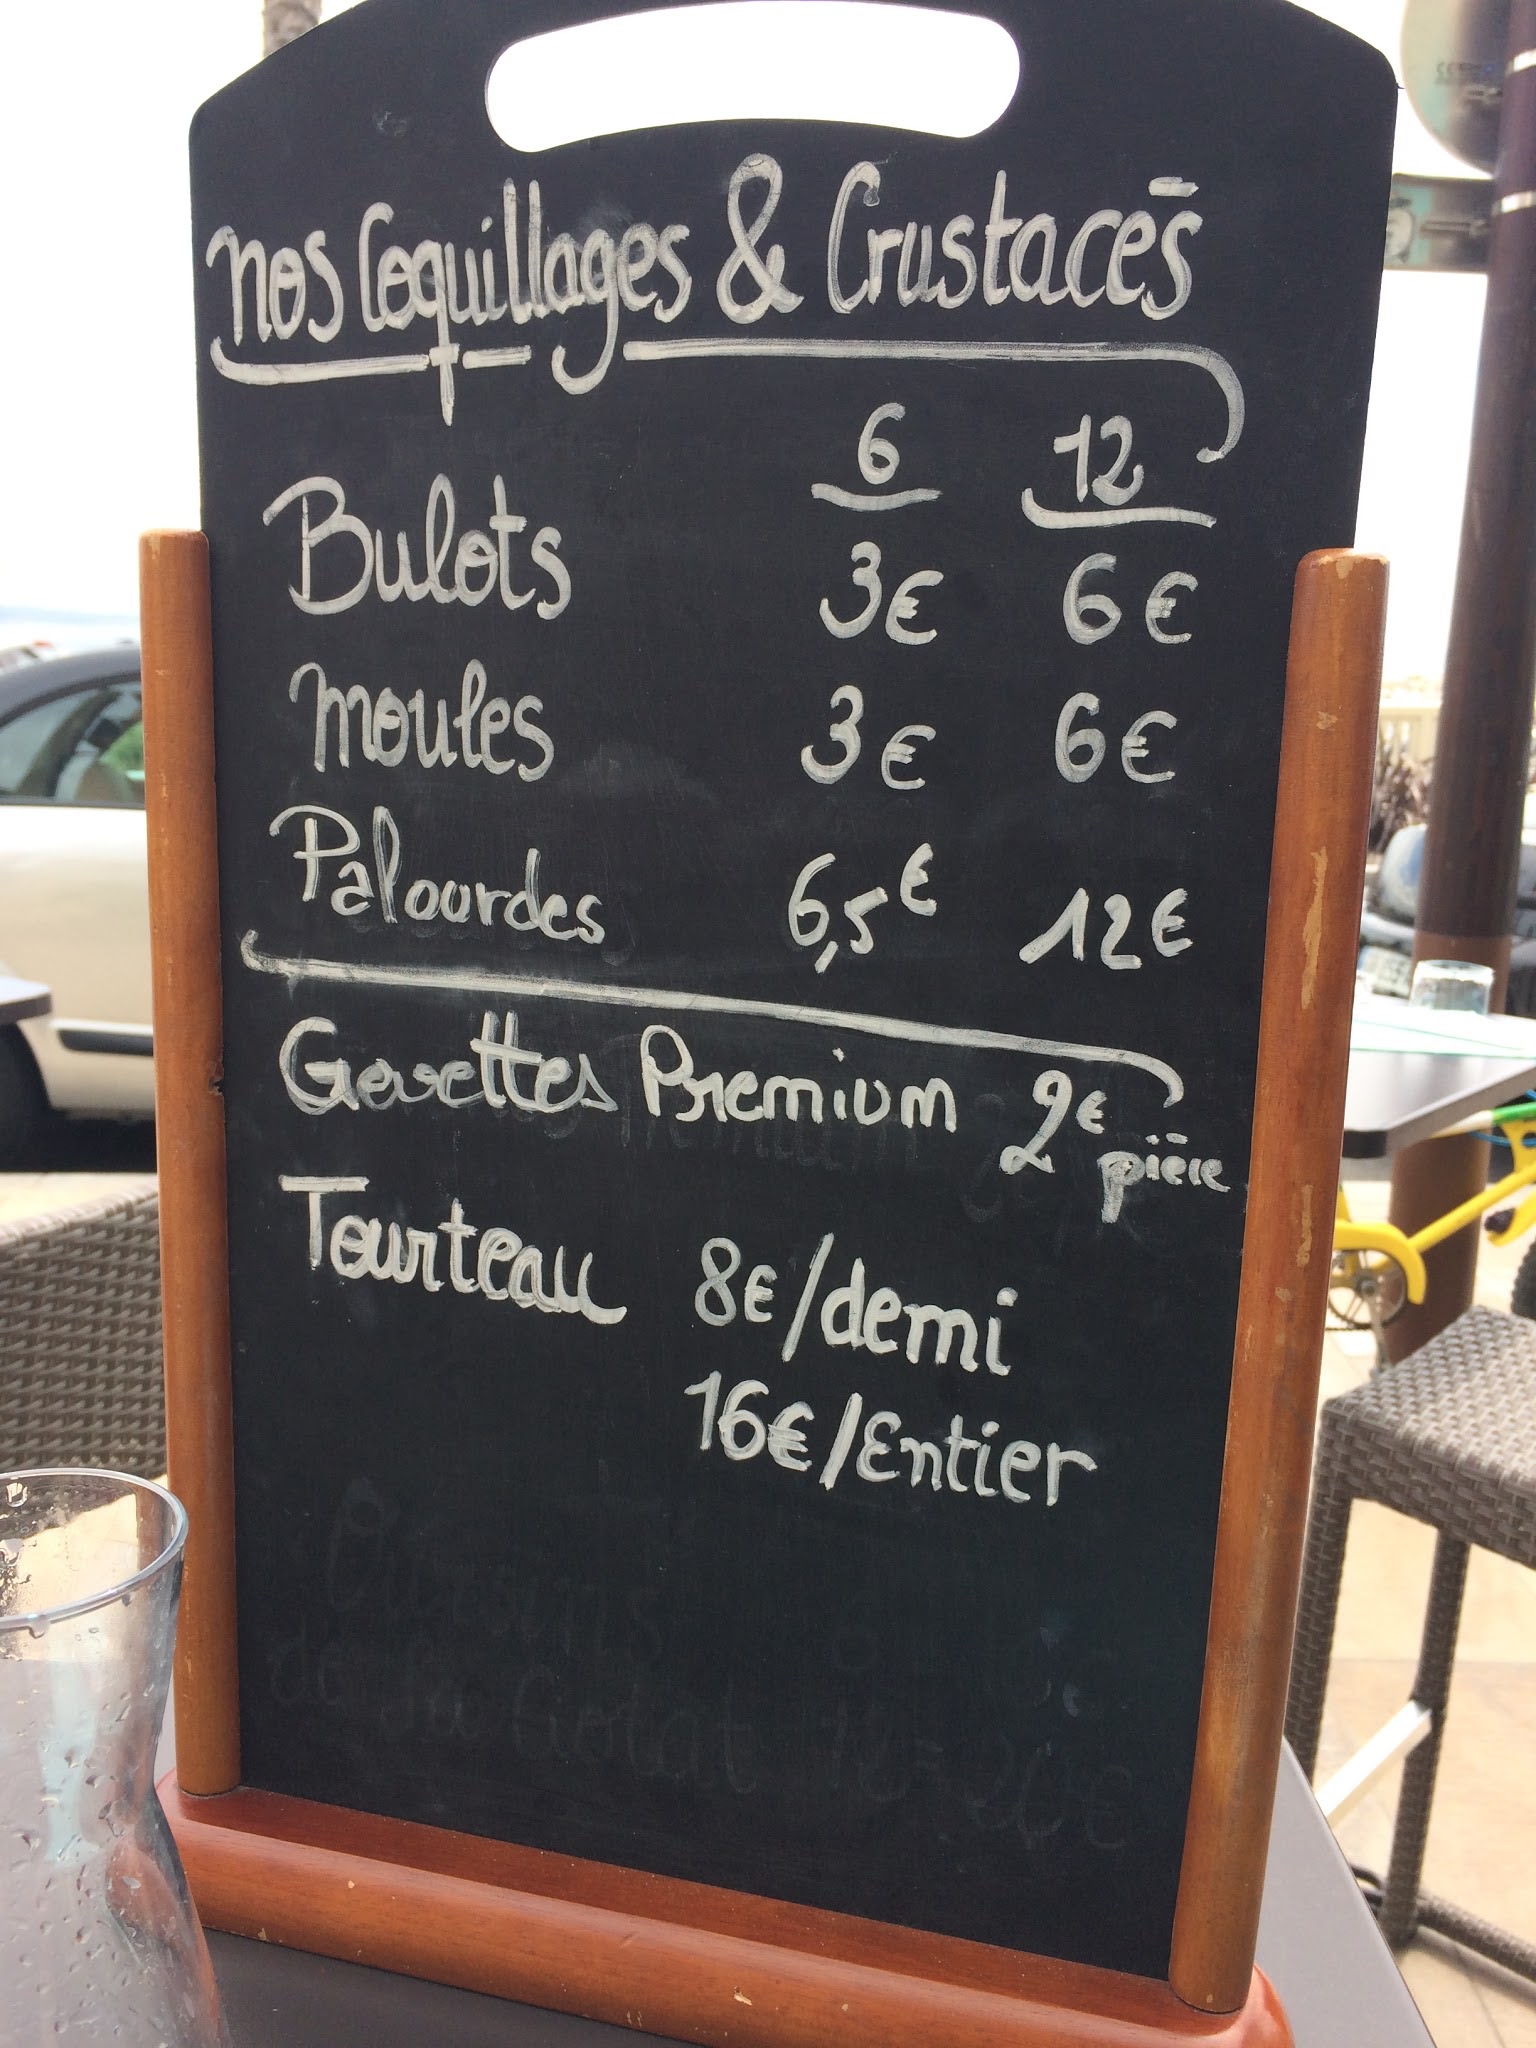 nos Coquillages & Crustacés
6 12
Bulots 3€ 6€
Moules 3€ 6€
Palourdes 6,5€ 12€
Gevettes Premium 2€ pièce
Tourteau 8€/demi
16€/Entier